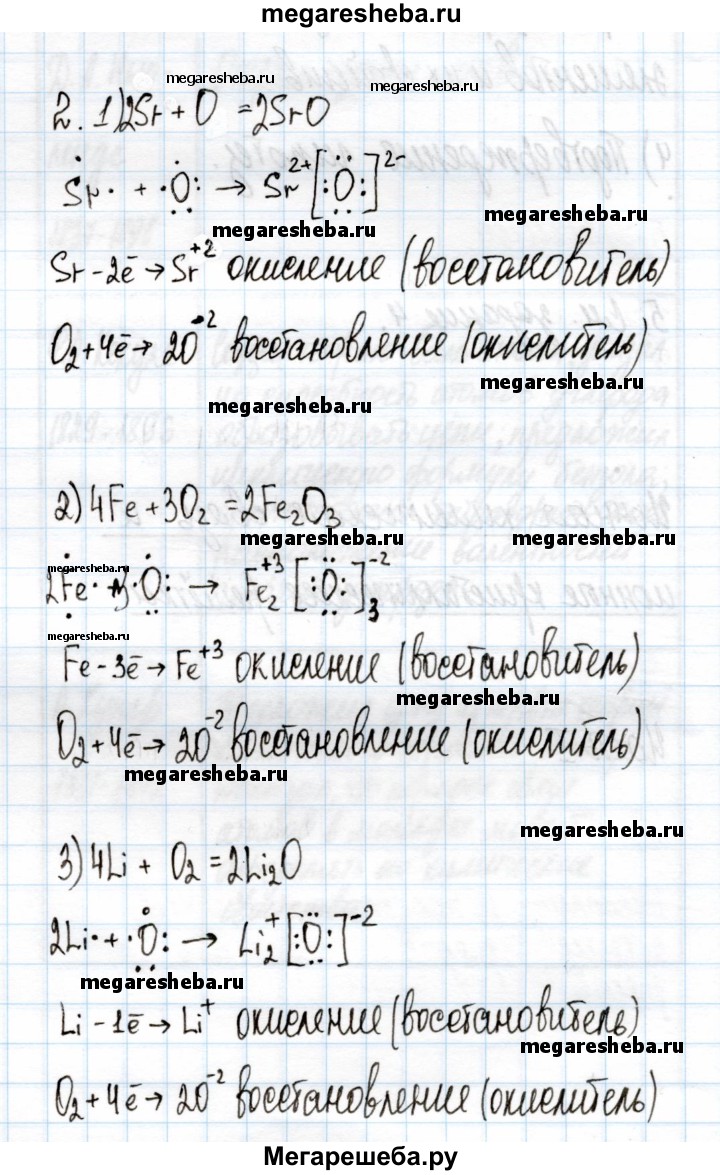 megaresheba.ru
megaresheba.ru
megaresheba.ru
2. 1) 2Sr + O = 2SrO
Sr· + ·O: → Sr²⁺[:O:]²⁻
megaresheba.ru
megaresheba.ru
Sr - 2ē → Sr⁺² окисление (восстановитель)
O₂ + 4ē → 2O⁻² восстановление (окислитель)
megaresheba.ru
megaresheba.ru
2) 4Fe + 3O₂ = 2Fe₂O₃
megaresheba.ru
2Fe· + 3·O: → Fe₂⁺³[:O:]₃⁻²
megaresheba.ru
megaresheba.ru
Fe - 3ē → Fe⁺³ окисление (восстановитель)
megaresheba.ru
O₂ + 4ē → 2O⁻² восстановление (окислитель)
megaresheba.ru
megaresheba.ru
3) 4Li + O₂ = 2Li₂O
2Li· + ·O: → Li₂⁺[:O:]⁻²
megaresheba.ru
Li - 1ē → Li⁺ окисление (восстановитель)
megaresheba.ru
O₂ + 4ē → 2O⁻² восстановление (окислитель)
Мегарешеба.ру